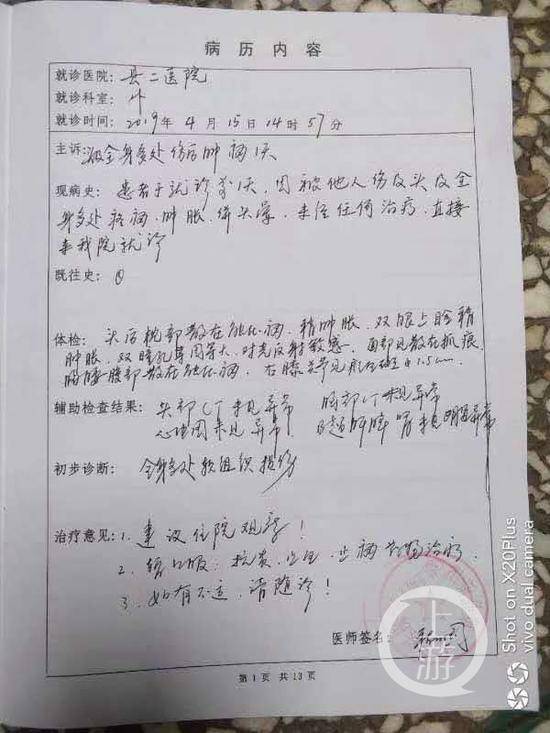 病历内容
就诊医院: 县二医院
就诊科室: 外
就诊时间: 2019年4月15日14时57分
主诉: 全身多处伤后肿痛1天
现病史: 患者于就诊前1天,因被他人伤及头及全
身多处疼痛、肿胀,伴头晕,未经任何治疗,直接
来我院就诊
既往史:
体检: 头后枕部散在触压痛,稍肿胀,双眼上睑稍
肿胀,双瞳孔等圆等大,对光反射敏感,面部见散在抓痕,
胸腰部散在触压痛,右膝关节见 1.5cm
辅助检查结果: 头部CT未见异常 胸部CT未见异常
心电图未见异常 肝脾 未见明显异常
初步诊断: 全身多处软组织损伤
治疗意见: 1、建议住院观察!
2、口服:抗炎、止痛 治疗。
3、如有不适,请随诊!
医师签名:
第1页 共13页
上游
Shot on X20Plus
vivo dual camera